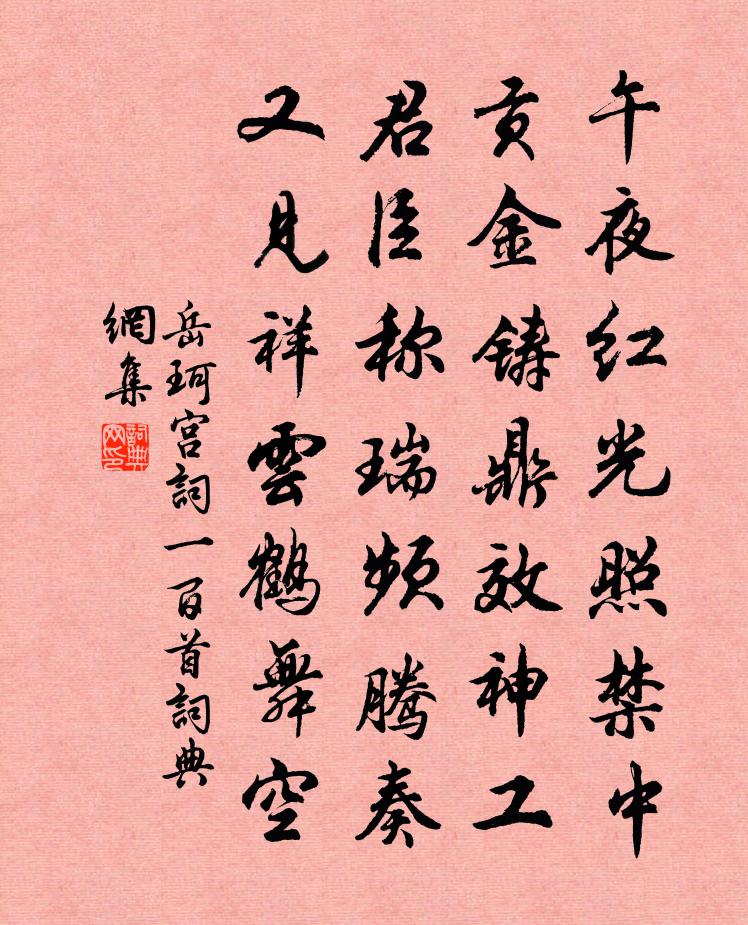 午夜红光照禁中
贡金铸鼎效神工
君臣称瑞频腾奏
又见祥雲鹤舞空
岳珂宫詞一百首詞典
網集
詞典
网印